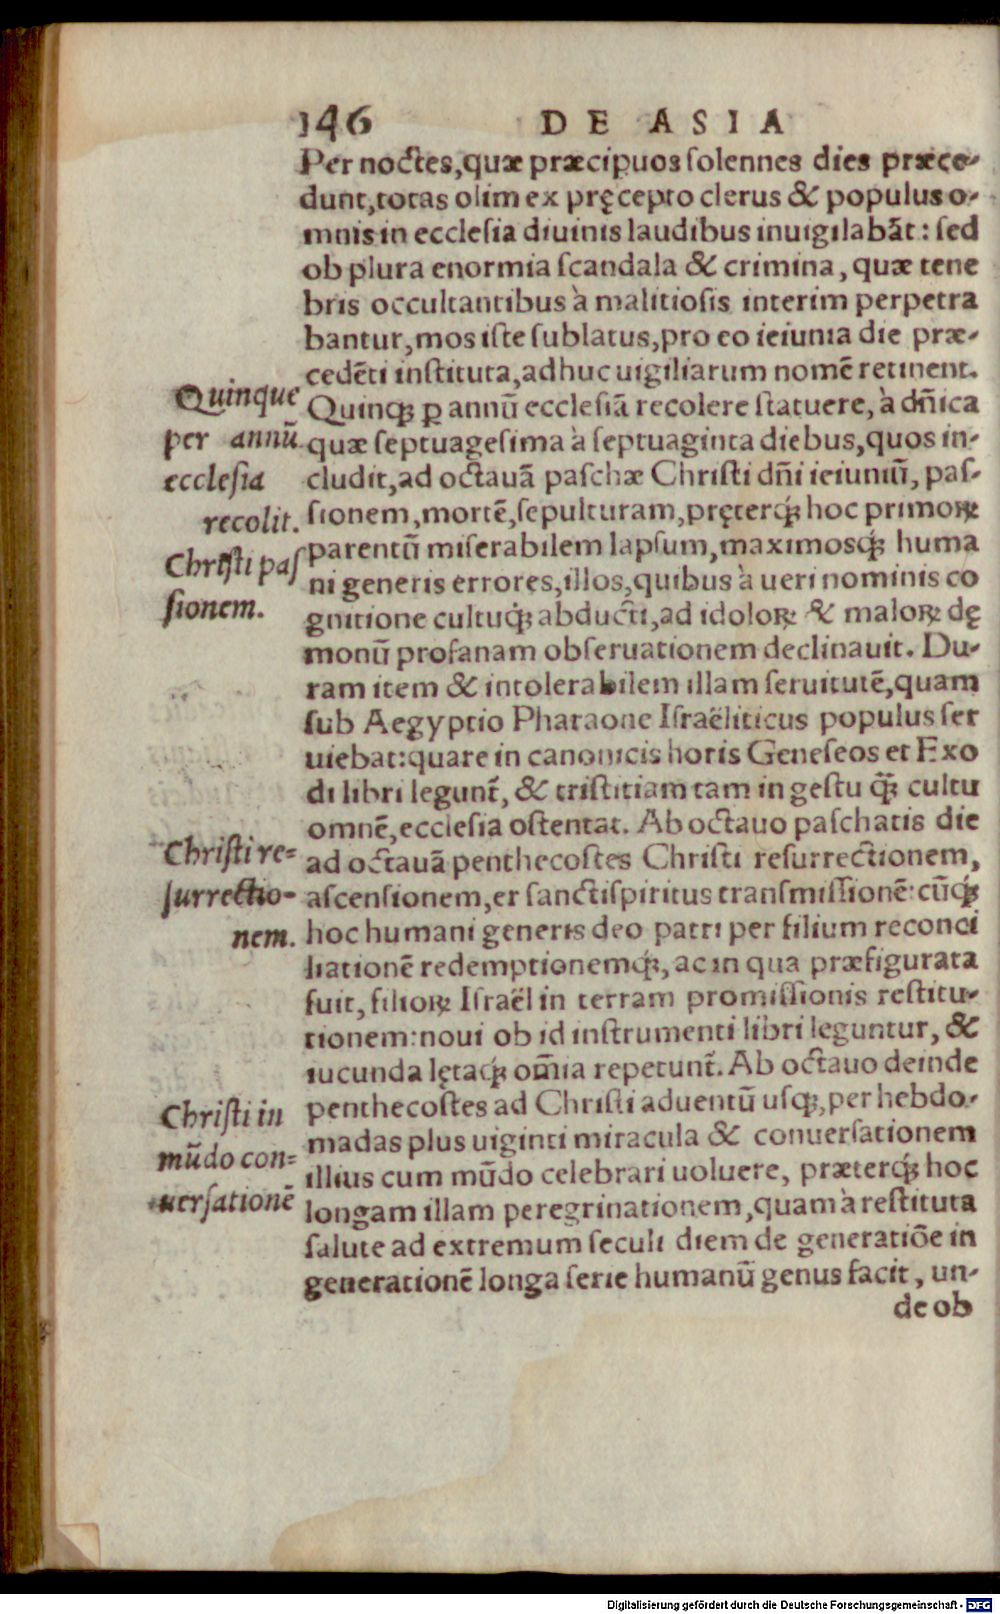 146 DE ASIA
Per noctes, quæ præcipuos solennes dies præce-
dunt, totas olim ex pręcepto clerus & populus o-
mnis in ecclesia diuinis laudibus inuigilabāt: sed
ob plura enormia scandala & crimina, quæ tene
bris occultantibus à malitiosis interim perpetra
bantur, mos iste sublatus, pro eo ieiunia die præ-
cedēti instituta, adhuc uigiliarum nomē retinent.
Quinque
Quinqꝫ ꝑ annū ecclesiā recolere statuere, à dñica
per annū
quæ septuagesima à septuaginta diebus, quos in-
ecclesia
cludit, ad octauā paschæ Christi dñi ieiuniū, pas-
recolit.
sionem, mortē, sepulturam, pręterqꝫ́ hoc primoꝝ
Christi pas
parentū miserabilem lapsum, maximosqꝫ́ huma
sionem.
ni generis errores, illos, quibus à ueri nominis co
gnitione cultuqꝫ́ abducti, ad idoloꝝ & maloꝝ dę
monū profanam obseruationem declinauit. Du-
ram item & intolerabilem illam seruitutē, quam
sub Aegyptio Pharaone Israëliticus populus ser
uiebat: quare in canonicis horis Geneseos et Exo
di libri legunt̃, & tristitiam tam in gestu q̃ꝫ cultu
omnē, ecclesia ostentat. Ab octauo paschatis die
Christi re-
ad octauā penthecostes Christi resurrectionem,
surrectio-
ascensionem, et sanctispiritus transmissionē: cūqꝫ́
nem.
hoc humani generis deo patri per filium reconci
liationē redemptionemqꝫ́, ac in qua præfigurata
fuit, filioꝝ Israël in terram promissionis restitu-
tionem: noui ob id instrumenti libri leguntur, &
iucunda lętaqꝫ́ om̄ia repetunt̃. Ab octauo deinde
Christi in
penthecostes ad Christi aduentū usqꝫ, per hebdo-
mūdo con-
madas plus uiginti miracula & conuersationem
uersationē
illius cum mūdo celebrari uoluere, præterqꝫ́ hoc
longam illam peregrinationem, quam à restituta
salute ad extremum seculi diem de generatiōe in
generationē longa serie humanū genus facit, un-
de ob
Digitalisierung gefördert durch die Deutsche Forschungsgemeinschaft - DFG